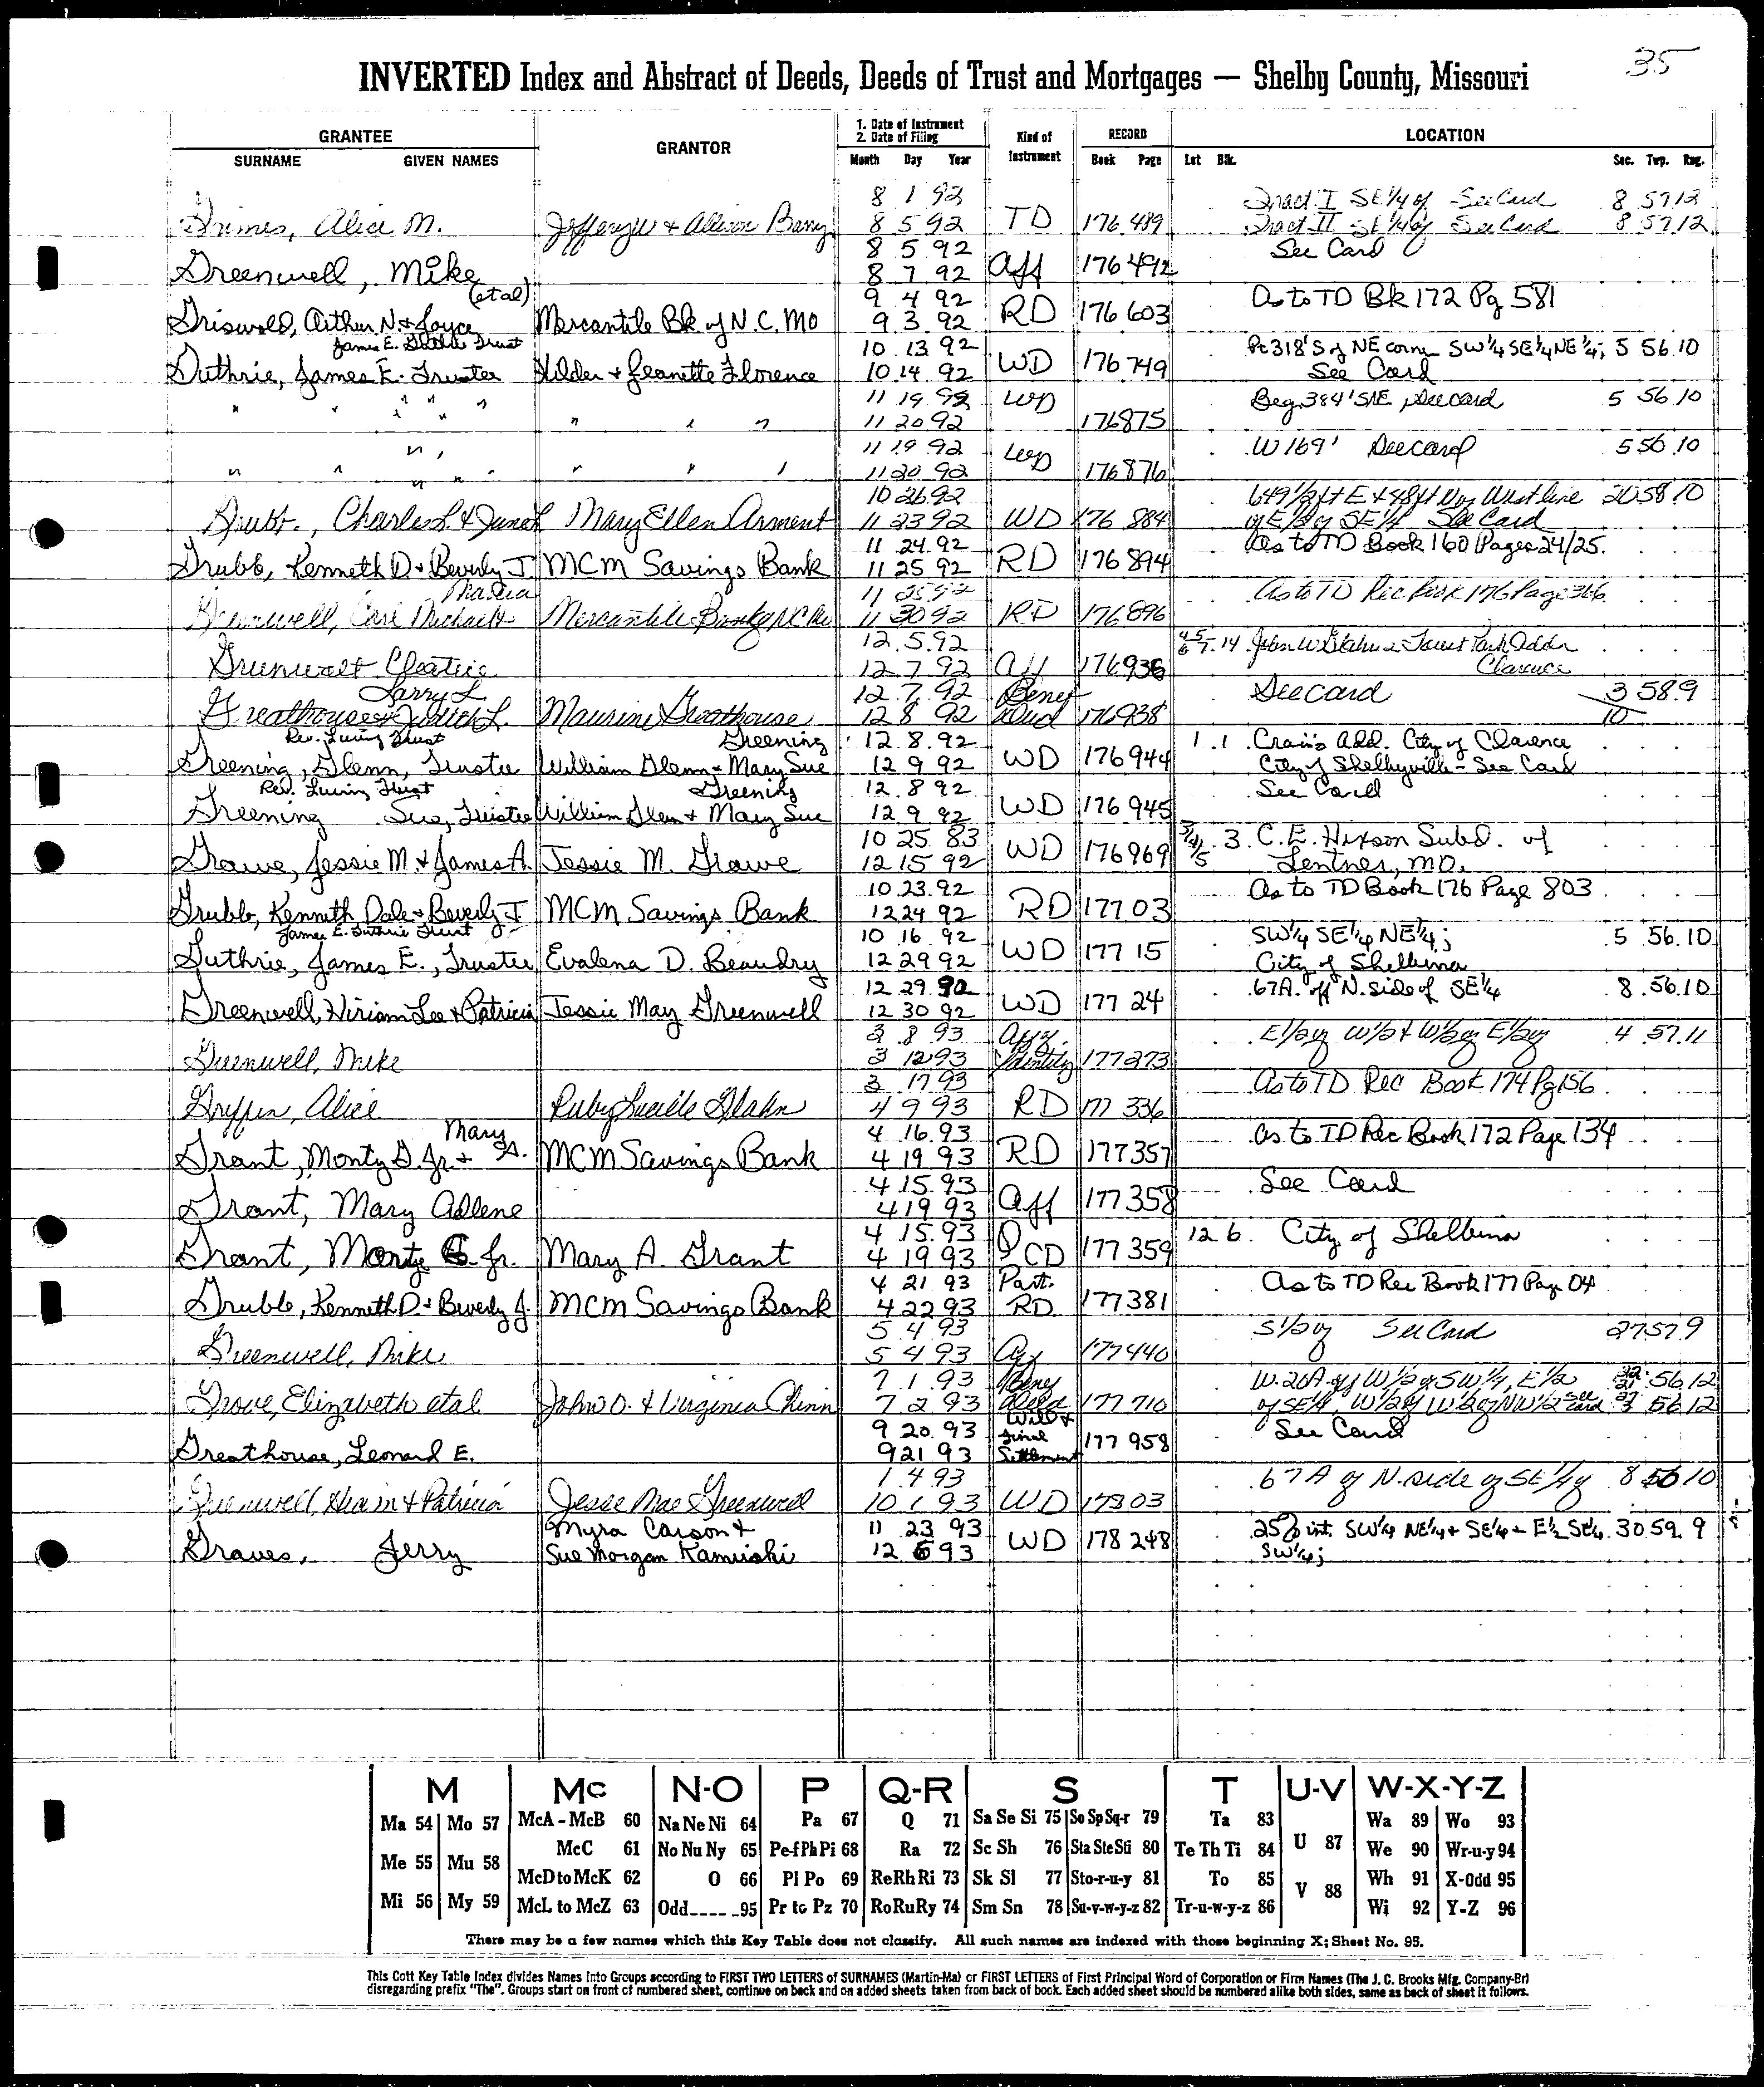 35
INVERTED Index and Abstract of Deeds, Deeds of Trust and Mortgages — Shelby County, Missouri
GRANTEE GRANTOR 1. Date of Instrument Kind of RECORD LOCATION
2. Date of Filing Instrument
SURNAME GIVEN NAMES Month Day Year Book Page Lot Blk. Sec. Twp. Rng.
8 1 92 Tract I SE 1/4 of See Card 8 57 12
Grimes, Alice M. Jeffery W & Allison Barry 8 5 92 TD 176 489 Tract II SE 1/4 of See Card 8 57 12
8 5 92 See Card
Greenwell, Mike 8 7 92 Aff 176 492
(etal) 9 4 92 As to TD Bk 172 Pg 581
Griswold, Arthur N. & Joyce Mercantile Bk of N.C. MO 9 3 92 RD 176 603
James E. Guthrie Trust 10 13 92 Pt 318' S of NE corner SW 1/4 SE 1/4 NE 1/4; 5 56 10
Guthrie, James E. Trustee Hilder & Jeanette Florence 10 14 92 WD 176 749 See Card
" " " " " 11 19 92 WD Beg 384' S NE, See card 5 56 10
" " " 11 20 92 176 875
" " 11 19 92 WD W 169' See card 5 56 10
" " " " " " 11 20 92 176 876
10 26 92 649 1/2 ft E & 48 ft N of West line 20 58 10
Grubb, Charles L & June L Mary Ellen Arment 11 23 92 WD 176 884 of E 1/2 of SE 1/4 See Card
11 24 92 As to TD Book 160 Pages 24/25
Grubb, Kenneth D. & Beverly J. MCM Savings Bank 11 25 92 RD 176 894
Maria 11 25 92 As to TD Rec Book 176 Page 366
Greenwell, Carl Michael & Mercantile Bank of NC Mo 11 30 92 RD 176 896
12 5 92 4 5 6 7 14 John W Glahn 2 Forest Park Addn
Grunwalt Cleatice 12 7 92 Aff 176 936 Clarence
Larry L. 12 7 92 Benef See card 3 58 9
Greathouse & Judith L. Maurine Greathouse 12 8 92 Deed 176 938 10
Rev. Living Trust Greening 12 8 92 1 1 Crain's Add. City of Clarence
Greening, Glenn, Trustee William Glenn & Mary Sue 12 9 92 WD 176 944 City of Shelbyville - See Card
Rev. Living Trust Greening 12 8 92 See Card
Greening Sue, Trustee William Glen & Mary Sue 12 9 92 WD 176 945
10 25 83 3/4/5 3 C.E. Hixson Subd. of
Grawe, Jessie M. & James A. Jessie M. Grawe 12 15 92 WD 176 969 Lentner, MO.
10 23 92 As to TD Book 176 Page 803
Grubb, Kenneth Dale & Beverly J MCM Savings Bank 12 24 92 RD 177 03
James E. Guthrie Trust 10 16 92 SW 1/4 SE 1/4 NE 1/4; 5 56 10
Guthrie, James E., Trustee Evalena D. Beaudry 12 29 92 WD 177 15 City of Shelbina
12 29 92 67A. off N. side of SE 1/4 8 56 10
Greenwell, Hiriam Lee & Patricia Jessie May Greenwell 12 30 92 WD 177 24
3 8 93 Aff. E 1/2 of W 1/2 & W 1/2 of E 1/2 of 4 57 11
Greenwell, Mike 3 12 93 Identity 177 273
3 17 93 As to TD Rec Book 174 Pg 156
Griffin, Alice Ruby Lucille Glahn 4 9 93 RD 177 336
Mary 4 16 93 As to TD Rec Book 172 Page 134
Grant, Monty G. Jr. & A. MCM Savings Bank 4 19 93 RD 177 357
4 15 93 See Card
Grant, Mary Adlene 4 19 93 Aff 177 358
4 15 93 12 6 City of Shelbina
Grant, Monty G. Jr. Mary A. Grant 4 19 93 QCD 177 359
4 21 93 Part. As to TD Rec Book 177 Page 04
Grubb, Kenneth D. & Beverly J. MCM Savings Bank 4 22 93 RD 177 381
5 4 93 S 1/2 of See Card 27 57 9
Greenwell, Mike 5 4 93 Aff 177 440
7 1 93 Beny W. 20A of W 1/2 of SW 1/4, E 1/2 56 12
Grove, Elizabeth etal John O. & Virginia Chinn 7 2 93 Deed 177 710 of SE 1/4, W 1/2 of W 1/2 of NW 1/2 see card 56 12
9 20 93 Will & Final See Card
Greathouse, Leonard E. 9 21 93 Settlement 177 958
1 4 93 67 A of N. side of SE 1/4 of 8 56 10
Greenwell, Hiram & Patricia Jesse Mae Greenwell 10 1 93 WD 178 03
Myra Carson & 11 23 93 25% int. SW 1/4 NE 1/4 + SE 1/4 - E 1/2 SE 1/4 30 59 9
Graves, Jerry Sue Morgan Kamiski 12 6 93 WD 178 248 SW 1/4;
M Mc N-O P Q-R S T U-V W-X-Y-Z
Ma 54 Mo 57 McA - McB 60 Na Ne Ni 64 Pa 67 Q 71 Sa Se Si 75 So Sp Sq-r 79 Ta 83 U 87 Wa 89 Wo 93
Me 55 Mu 58 McC 61 No Nu Ny 65 Pe-f Ph Pi 68 Ra 72 Sc Sh 76 Sta Ste Sti 80 Te Th Ti 84 We 90 Wr-u-y 94
McD to McK 62 O 66 Pl Po 69 Re Rh Ri 73 Sk Sl 77 Sto-r-u-y 81 To 85 V 88 Wh 91 X-Odd 95
Mi 56 My 59 McL to McZ 63 Odd-----95 Pr to Pz 70 Ro Ru Ry 74 Sm Sn 78 Su-v-w-y-z 82 Tr-u-w-y-z 86 Wi 92 Y-Z 96
There may be a few names which this Key Table does not classify. All such names are indexed with those beginning X; Sheet No. 95.
This Cott Key Table Index divides Names into Groups according to FIRST TWO LETTERS of SURNAMES (Martin-Ma) or FIRST LETTERS of First Principal Word of Corporation or Firm Names (The J. C. Brooks Mfg. Company-Br)
disregarding prefix "The". Groups start on front of numbered sheet, continue on back and on added sheets taken from back of book. Each added sheet should be numbered alike both sides, same as back of sheet it follows.